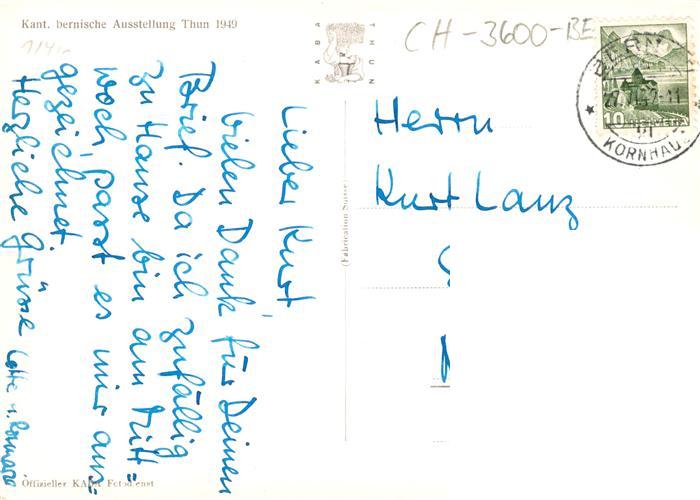 Kant. bernische Ausstellung Thun 1949
KABA THUN
CH-3600-BE
BERN
KORNHAU
10
HELVETIA
Lieber Kurt
vielen Dank für Deinen
Brief. Da ich zufällig
zu Hause bin am Mitt=
woch, passt es mir aus=
gezeichnet.
Herzliche Grüsse
Herrn
Kurt Lanz
(Fabrication Suisse)
Offizieller KABA Fotodienst